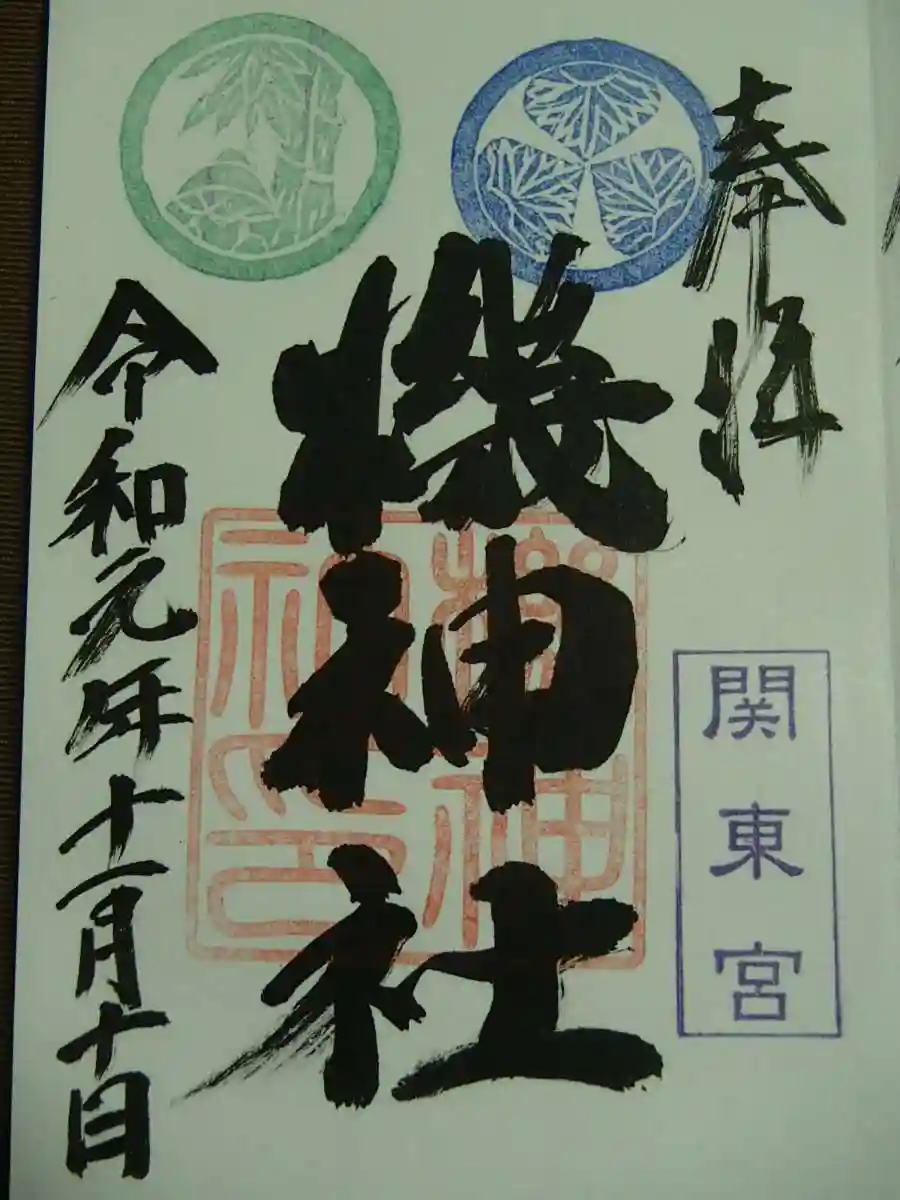 奉拝
関東宮
機神社
令和元年十一月十日